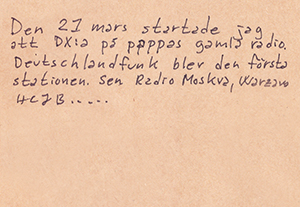 Den 21 mars startade jag
att DX:a på pappas gamla radio.
Deutschlandfunk blev den första
stationen. Sen Radio Moskva, Warzawa
4CJB.....